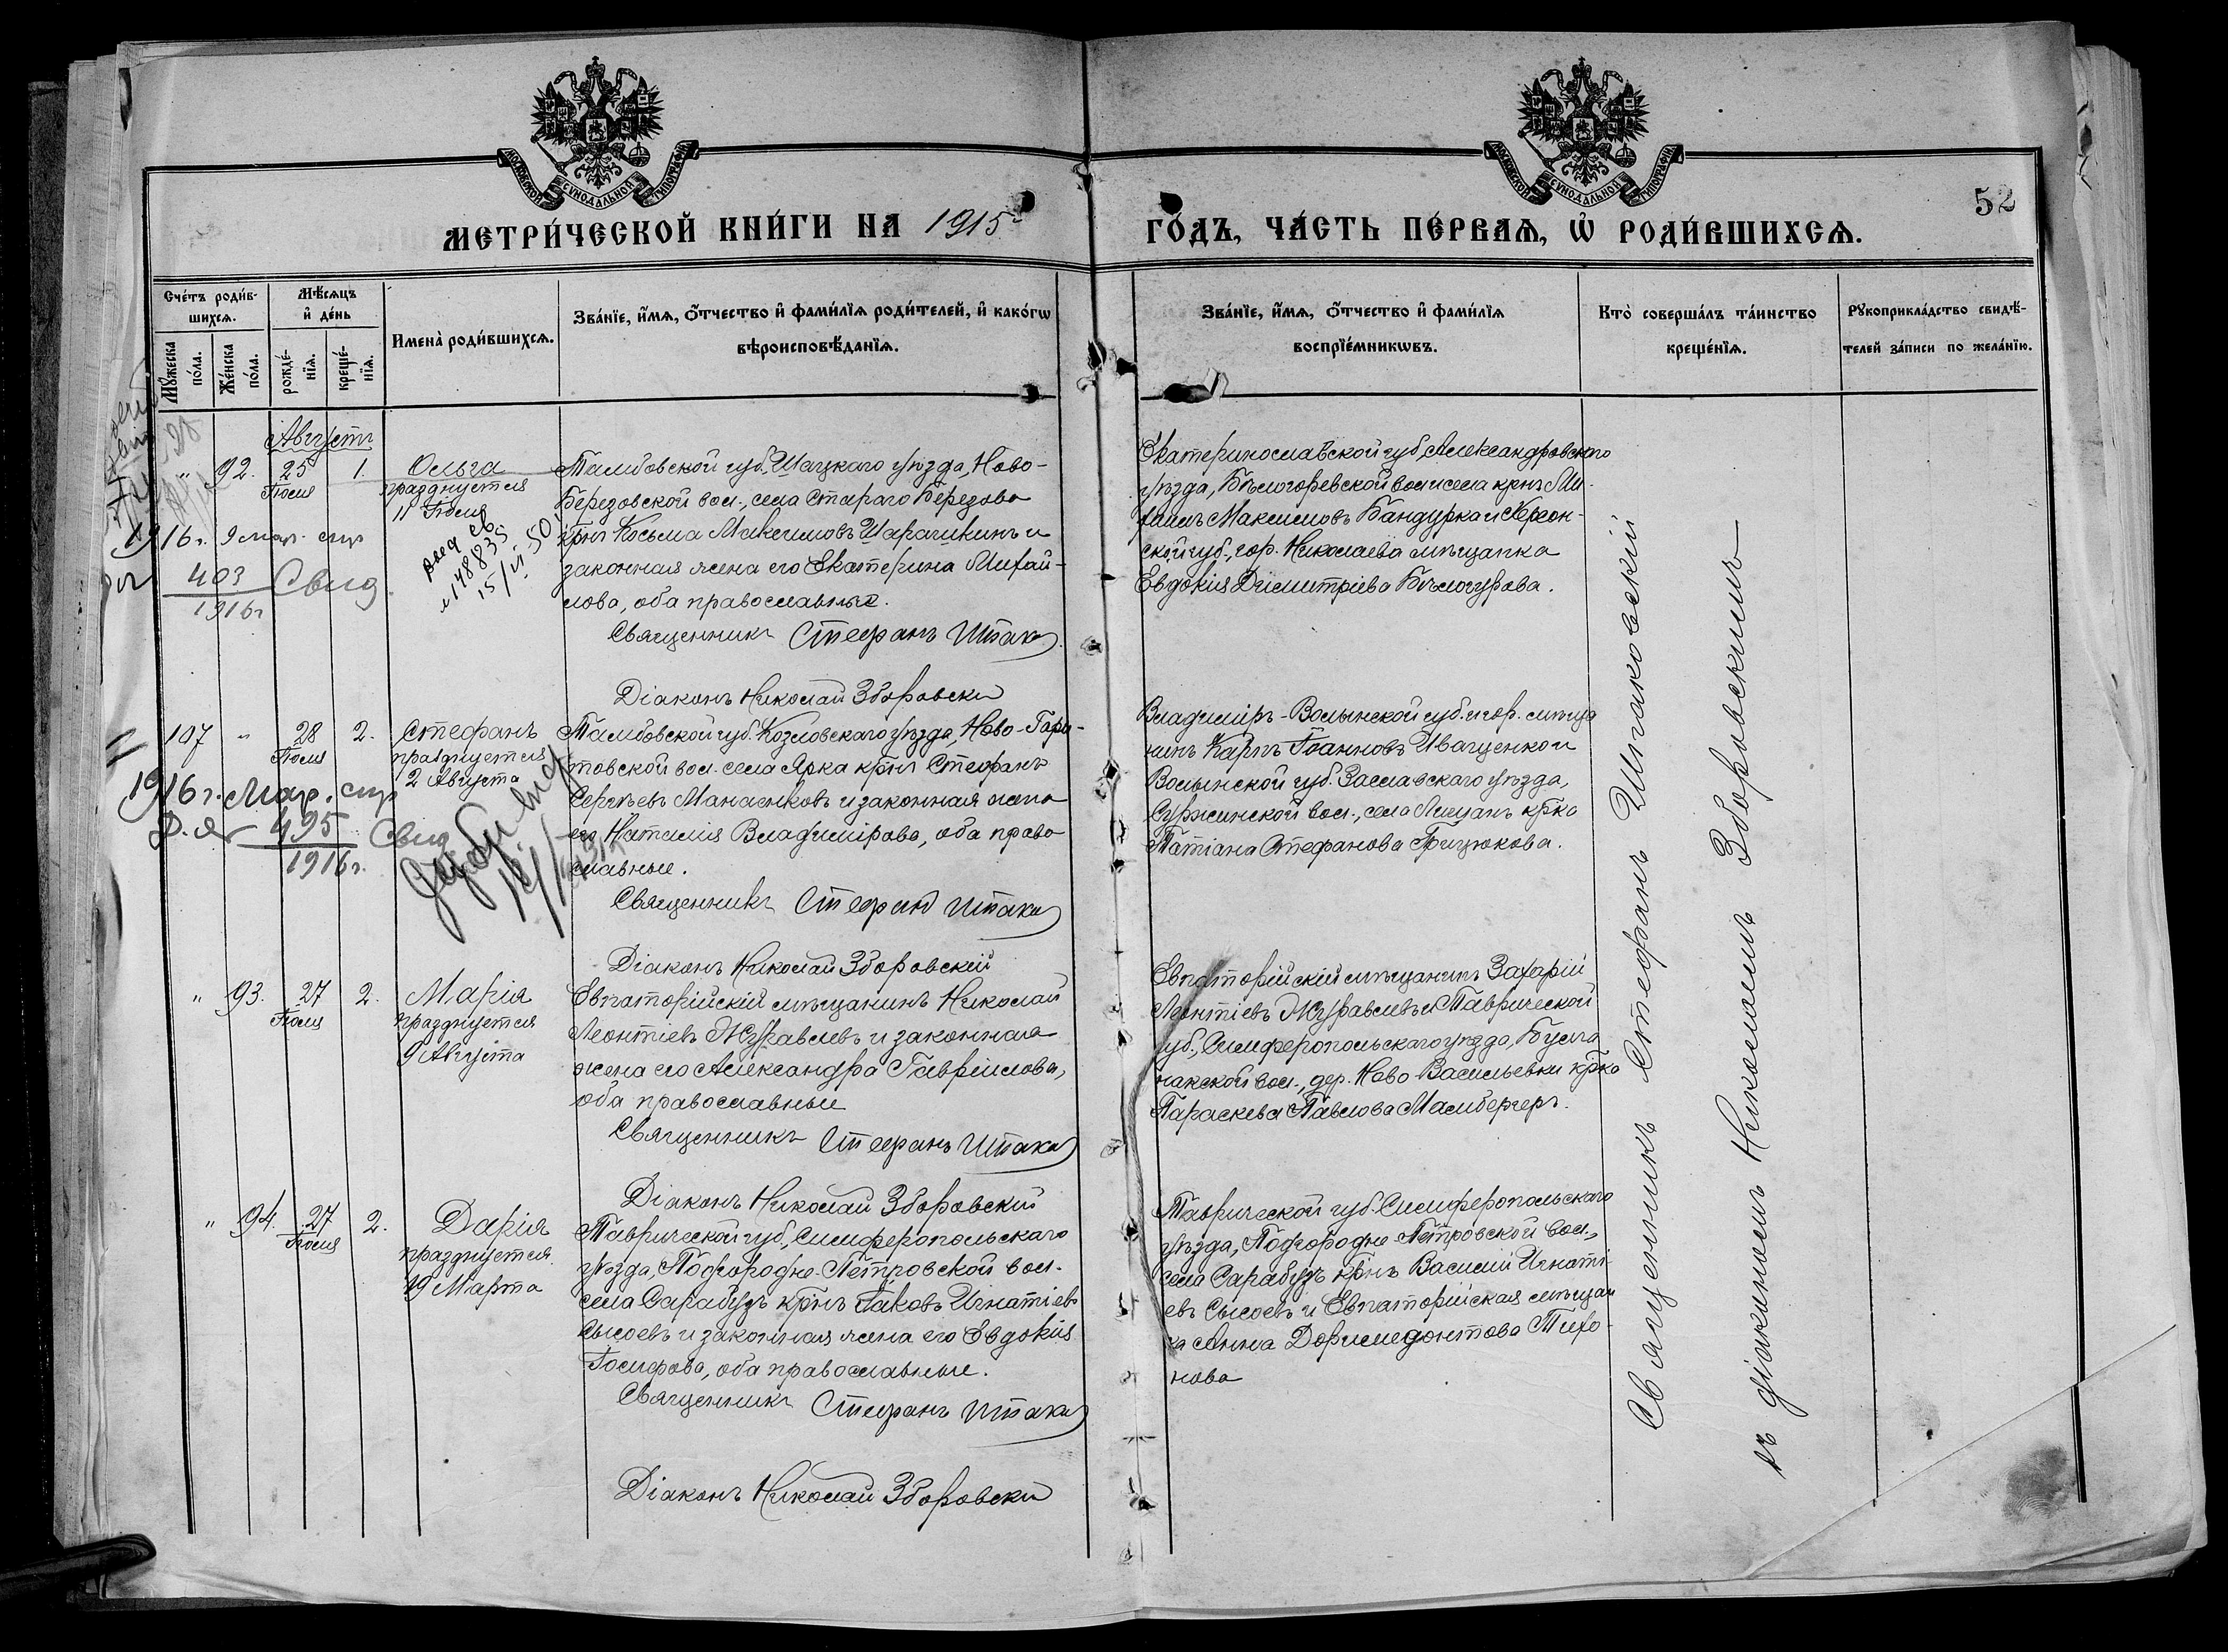 МОСКОВСКОЙ СѴНОДАЛЬНОЙ ТИПОГРАФІИ
МОСКОВСКОЙ СѴНОДАЛЬНОЙ ТИПОГРАФІИ
52
МЕТРИ́ЧЕСКОЙ КНИ́ГИ НА 1915
ГО́ДЪ, ЧА́СТЬ ПЕ́РВАѦ, Ѡ҆ РОДИ́ВШИХСѦ.
Сче́тъ роди́в-
шихсѧ.
Мѣ́сѧцъ
и҆ де́нь
Мꙋ́жеска
по́ла.
Же́нска
по́ла.
рожде́-
нїѧ.
креще́-
нїѧ.
Имена̀ роди́вшихсѧ.
Зва́нїе, и҆́мѧ, ѻ҆́тчество и҆ фами́лїѧ роди́телей, и҆ како́гѡ
вѣроисповѣ́данїѧ.
Зва́нїе, и҆́мѧ, ѻ҆́тчество и҆ фами́лїѧ
воспрїе́мникѡвъ.
Кто̀ соверша́лъ та́инство
креще́нїѧ.
Рꙋкоприкла́дство свидѣ́-
телей за́писи по жела́нїю.
Августъ
" 92. 25 Іюля 1. Ольга
празднуется
11 Іюля
1916 г. 9 мар.
403 Свид
1916 г
148835
15/
Тамбовской губ. Шацкаго уѣзда, Ново-
Березовской вол., села Стараго Березова
крнъ Косьма Максимовъ Шарашкинъ и
законная жена его Екатерина Михай-
лова, оба православные.
Священникъ Стефанъ Шпака
Діаконъ Николай Зборовски
Екатеринославской губ. Александровскаго
уѣзда, Бѣлогоревской вол и села крнъ Ми-
хаилъ Максимовъ Бандурка и Херсон-
ской губ., гор. Николаева мѣщанка
Евдокія Димитріева Бѣлогурова.
107 " 28 Іюля 2. Стефанъ
празднуется
2 Августа
1916 г. Мар.
495 Свид
1916 г.
Тамбовской губ. Козловскаго уѣзда, Ново-Гари-
товской вол. села Ярка крнъ Стефанъ
Сергѣевъ Манаенковъ и законная жена
его Наталія Владимірова, оба право-
славные.
Священникъ Стефанъ Шпака
Діаконъ Николай Зборовскій
Владиміръ-Волынской губ. и гор. мѣща
нинъ Карпъ Іоанновъ Иващенко и
Волынской губ. Заславскаго уѣзда,
Сужинской вол., села Лищанъ крка
Татіана Стефанова Грицюкова.
" 93. 27 Іюля 2. Марія
празднуется
9 Августа
Евпаторійскій мѣщанинъ Николай
Леонтіевъ Журавлевъ и законная
жена его Александра Гавріилова,
оба православные
Священникъ Стефанъ Шпака
Діаконъ Николай Зборовскій
Евпаторійскій мѣщанинъ Захарій
Леонтіевъ Журавлевъ и Таврической
губ., Симферопольскаго уѣзда, Булга
накской вол., дер. Ново-Васильевки крка
Параскева Павлова Мамбергеръ.
" 94. 27 Іюля 2. Дарія
празднуется
19 Марта
Таврической губ., Симферопольскаго
уѣзда, Подгородне-Петровской вол.
села Сарабузъ крнъ Іаковъ Игнатіевъ
Сысоевъ и законная жена его Евдокія
Іосифова, оба православные.
Священникъ Стефанъ Шпака
Діаконъ Николай Зборовски
Таврической губ. Симферопольскаго
уѣзда, Подгородне-Петровской вол.,
села Сарабузъ крнъ Василій Игнаті-
евъ Сысоевъ и Евпаторійская мѣщан
ка Анна Доримедонтова Тихо-
нова
Священникъ Стефанъ Шпаковскій
съ діакономъ Николаемъ Зборовскимъ